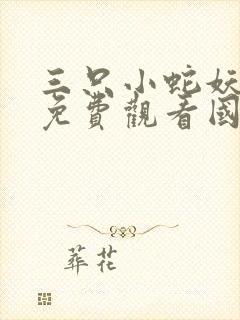 三只小蛇妖
免費觀看國
葬花